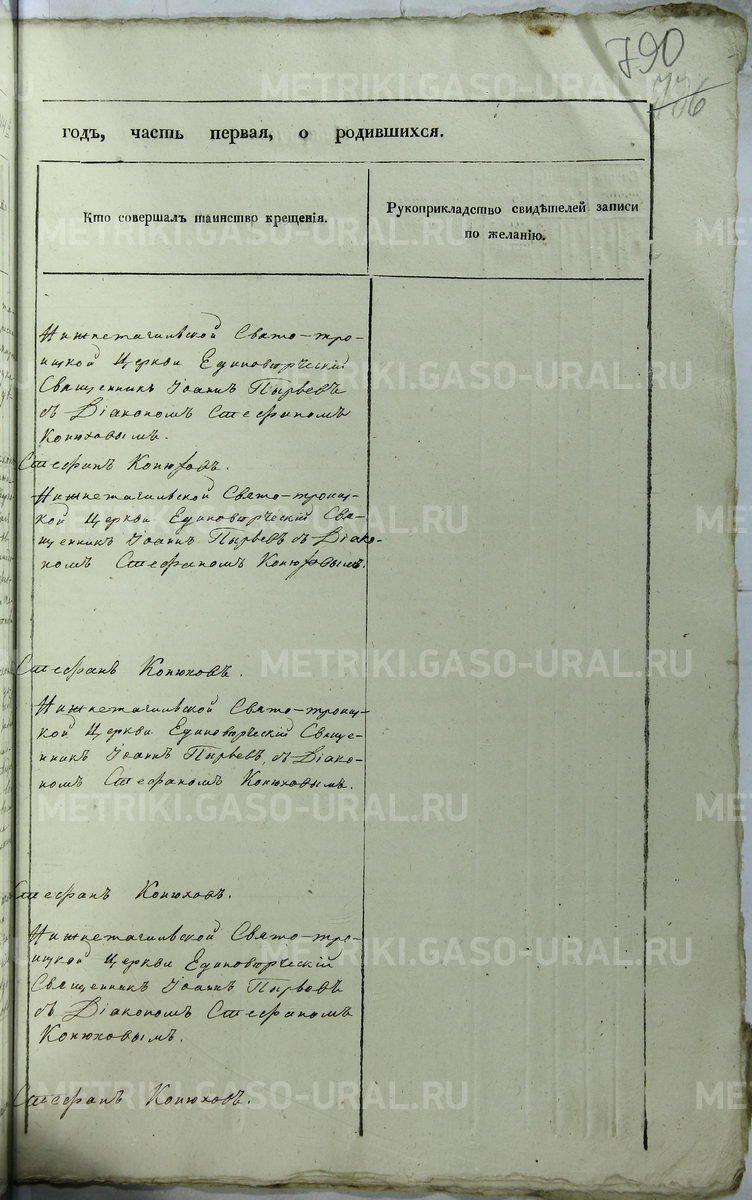 790
годъ, часть первая, о родившихся.
Кто совершалъ таинство крещенія.
Рукоприкладство свидѣтелей записи
по желанію.
Нижнетагильской Свято-тро-
ицкой Церкви Единовѣрческій
Священникъ Іоаннъ Пырьевъ
съ Діакономъ Стефаномъ
Конюховымъ.
Стефанъ Конюховъ.
Нижнетагильской Свято-троиц-
кой Церкви Единовѣрческій Свя-
щенникъ Іоаннъ Пырьевъ съ Діако-
номъ Стефаномъ Конюховымъ.
Стефанъ Конюховъ.
Нижнетагильской Свято-троиц-
кой Церкви Единовѣрческій Священ-
никъ Іоаннъ Пырьевъ, съ Діако-
номъ Стефаномъ Конюховымъ.
Стефанъ Конюховъ.
Нижнетагильской Свято-тро-
ицкой Церкви Единовѣрческій
Священникъ Іоаннъ Пырьевъ
съ Діакономъ Стефаномъ
Конюховымъ.
Стефанъ Конюховъ.
METRIKI.GASO-URAL.RU